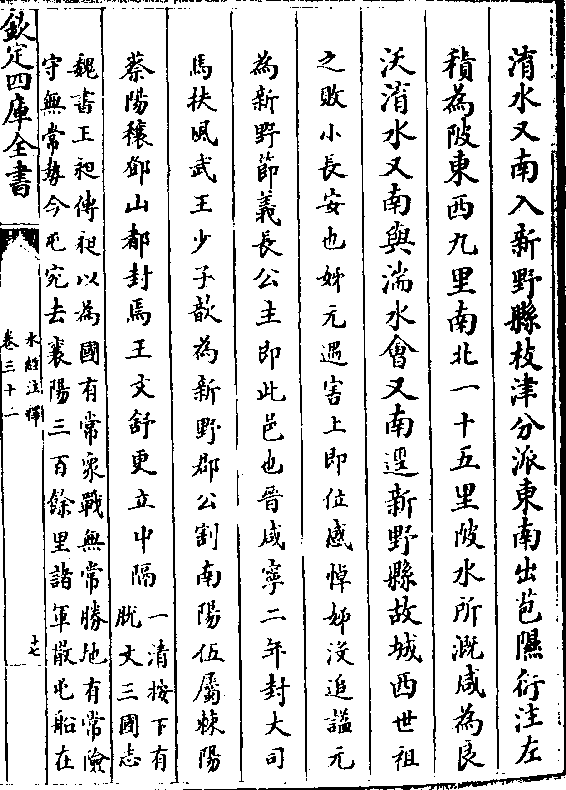 淯水又南入新野縣枝津分派東南出苞隰衍注左
積為陂東西九里南北一十五里陂水所溉咸為良
沃淯水又南與湍水會又南逕新野縣故城西世祖
之敗小長安也姊元遇害上即位感悼姊沒追諡元
為新野節義長公主即此邑也晉咸寧二年封大司
馬扶風武王少子歆為新野郡公割南陽伍屬棘陽
蔡陽穰鄧山都封焉王文舒更立中隔
一清按下有
脫文三國志
魏書王昶傳昶以為國有常衆戰無常勝地有常險
守無常勢今屯宛去襄陽三百餘里諸軍散屯船在
欽定四庫全書
水經注釋
卷三十一
十七